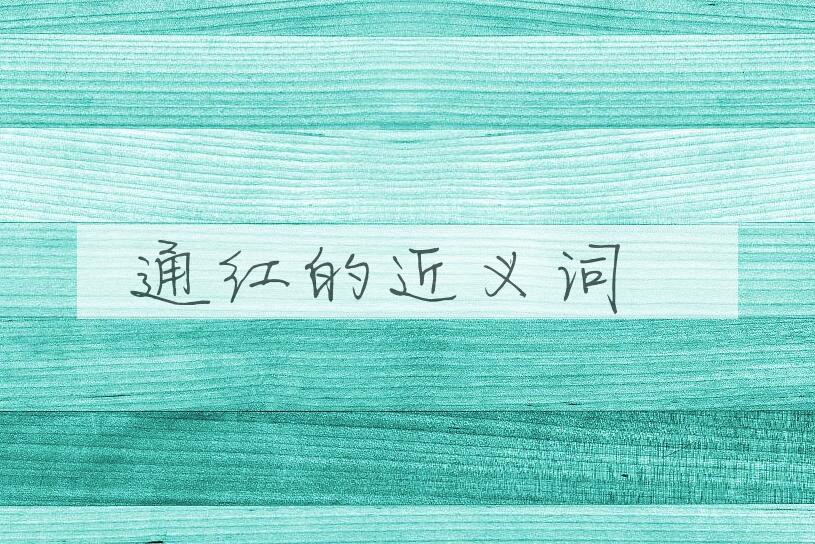 通红的近义词